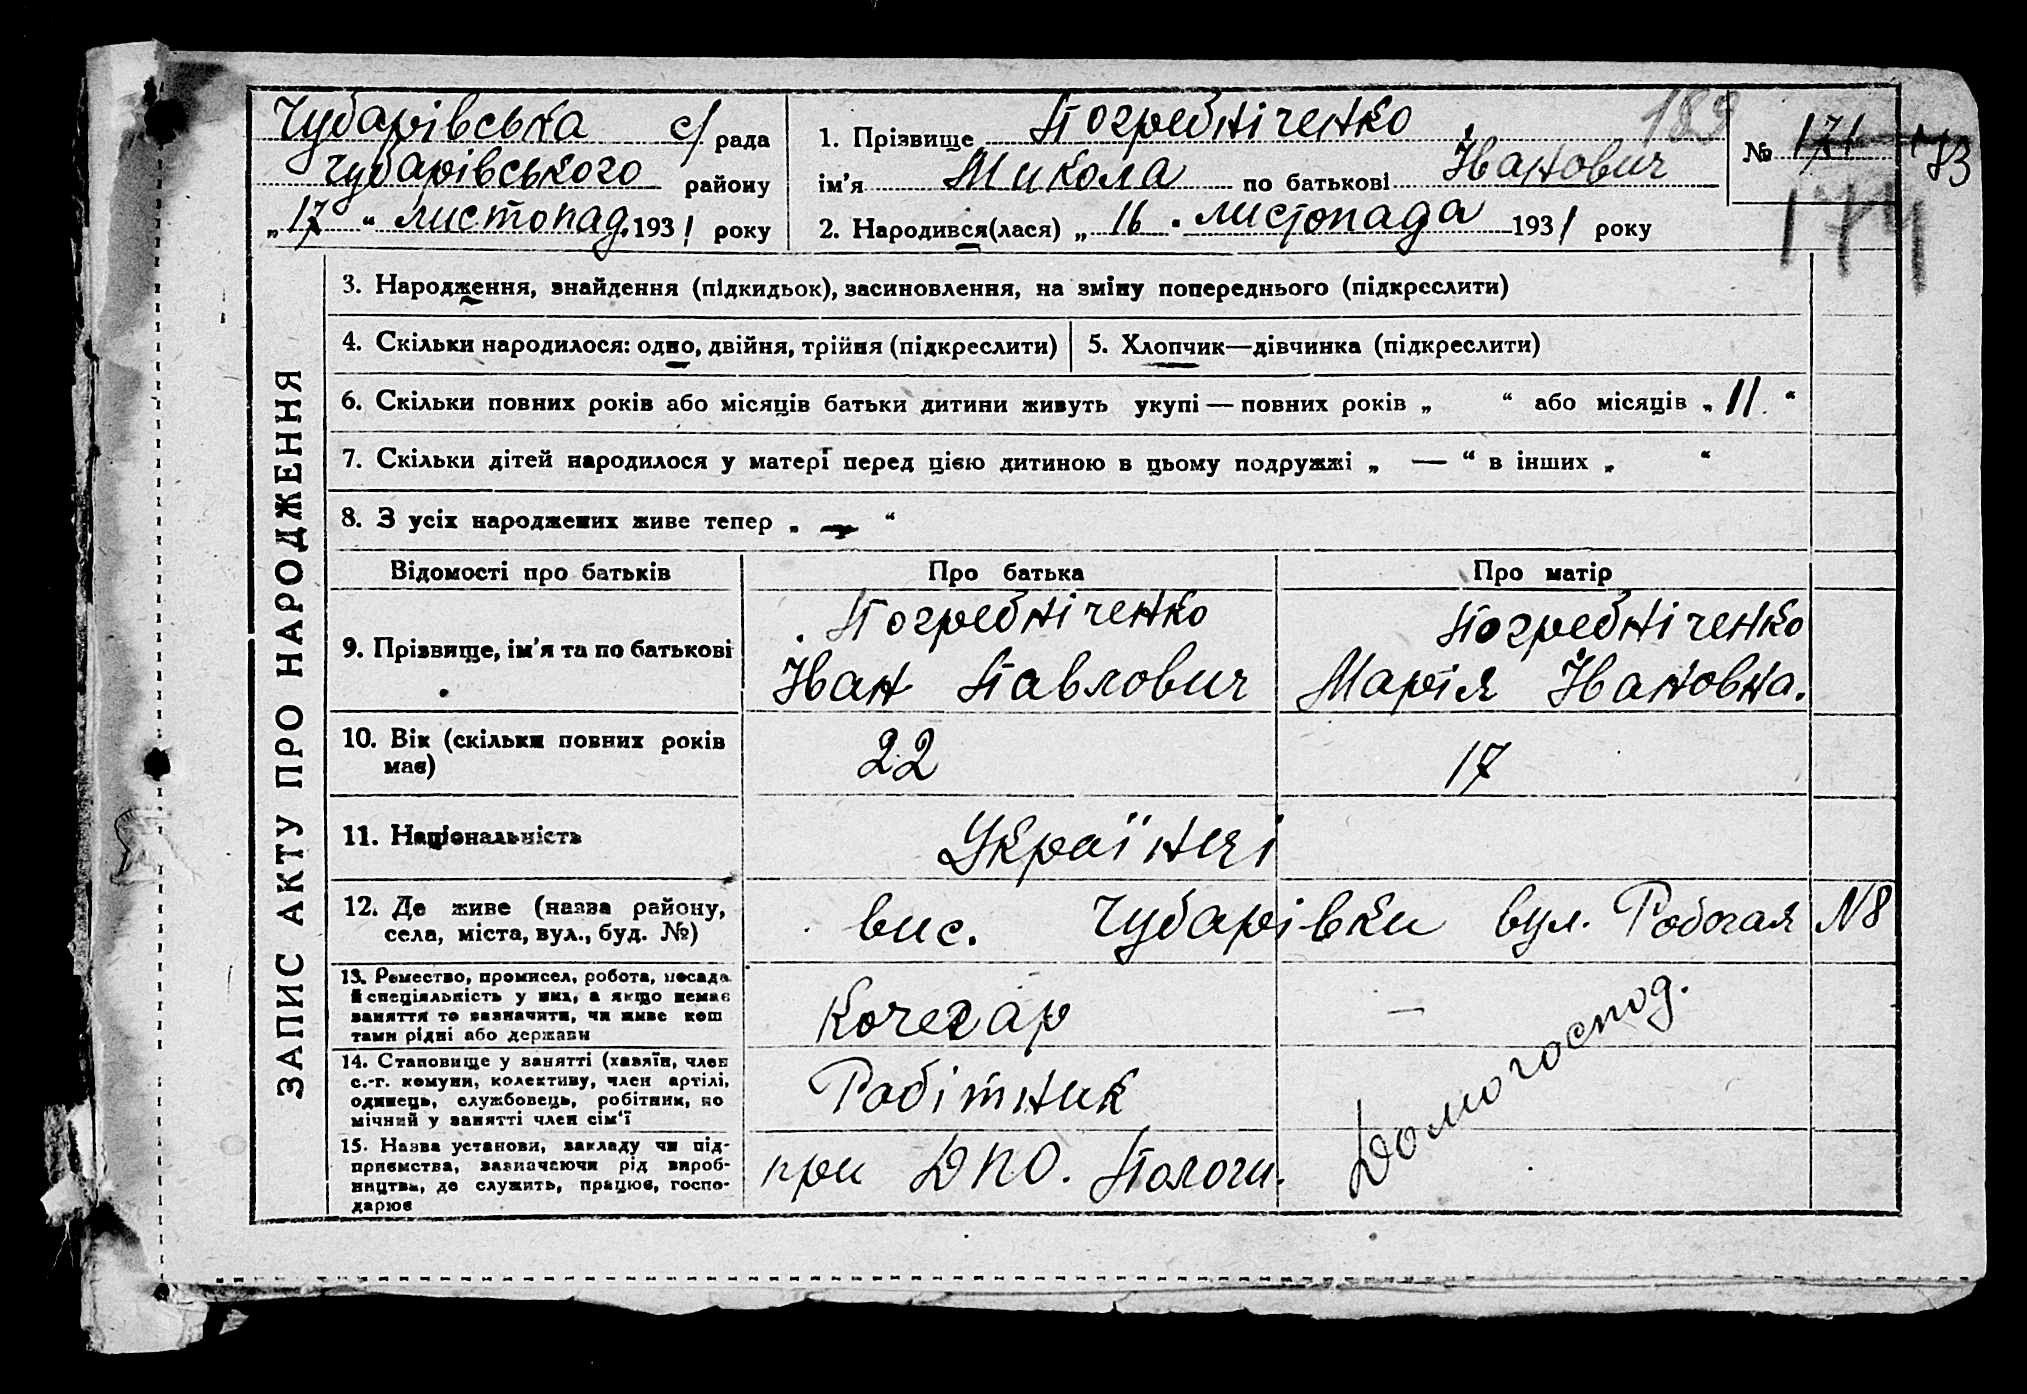 Чубарівська с/ рада
Чубарівського району
„17“ листопад. 1931 року
1. Прізвище Погребніченко
189
ім'я Микола по батькові Іванович
2. Народився(лася) „16" листопада 1931 року
№ 171 173
174
ЗАПИС АКТУ ПРО НАРОДЖЕННЯ
3. Народження, знайдення (підкидьок), засиновлення, на зміну попереднього (підкреслити)
4. Скільки народилося: одно, двійня, трійня (підкреслити)
5. Хлопчик—дівчинка (підкреслити)
6. Скільки повних років або місяців батьки дитини живуть укупі — повних років „ “ або місяців „11“
7. Скільки дітей народилося у матері перед цією дитиною в цьому подружжі „ — “ в інших „ “
8. З усіх народжених живе тепер „ — “
Відомості про батьків
Про батька
Про матір
9. Прізвище, ім'я та по батькові
Погребніченко
Іван Павлович
Погребніченко
Марія Івановна.
10. Вік (скільки повних років
має)
22
17
11. Національність
Українці
12. Де живе (назва району,
села, міста, вул., буд. №)
вис. Чубарівки вул. Робочая N8
13. Ремество, промисел, робота, посада
й спеціяльність у них, а якщо немає
заняття то зазначити, чи живе кош
тами рідні або держави
Кочегар
—
14. Становище у занятті (хазяїн, член
с.-г. комуни, колективу, член артілі,
одинець, службовець, робітник, по
мічний у занятті член сім'ї
Робітник
Домогоспод.
15. Назва установи, закладу чи під-
приємства, зазначаючи рід вироб-
ництва, де служить, працює, госпо-
дарює
при ДПО. Пологи.